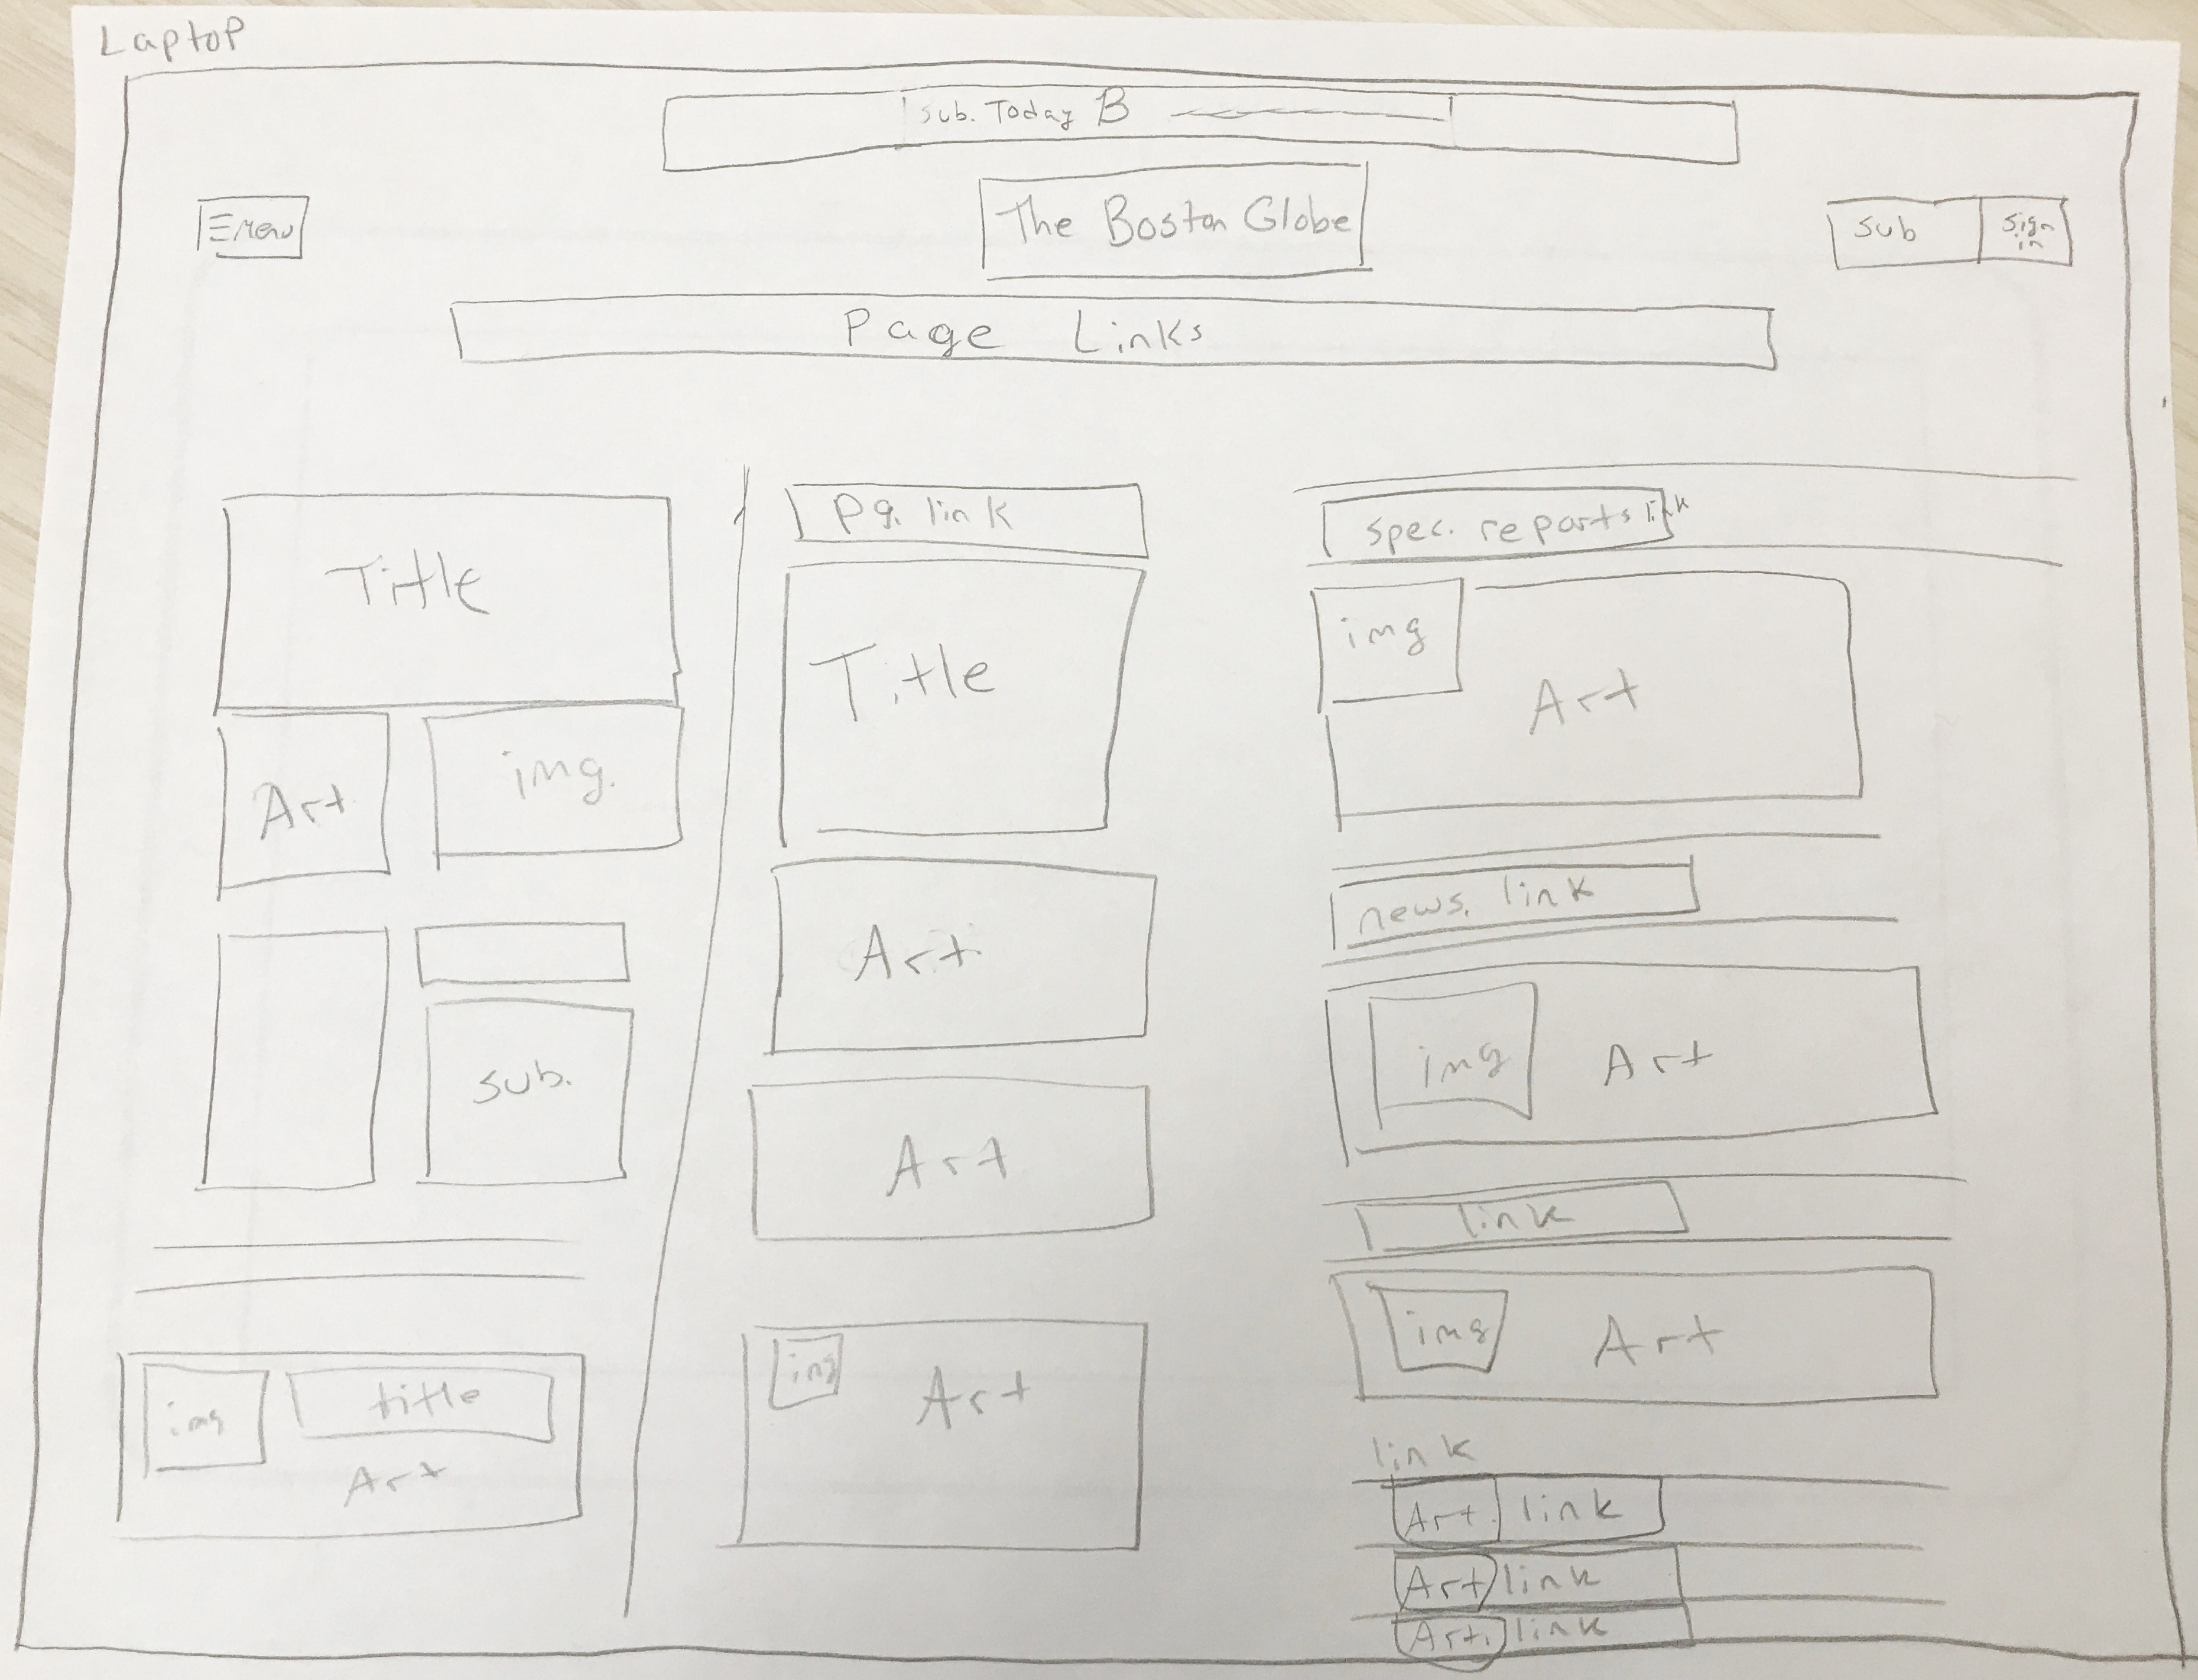 Laptop
Sub. Today B
Menu
The Boston Globe
Sub
Sign
in
Page Links
Title
Art
img.
Sub.
img
title
Art
Pg. link
Title
Art.
Art
img
Art
Spec. reports link
img
Art
news. link
img
Art
link
img
Art
link
Art. link
Art link
Art. link